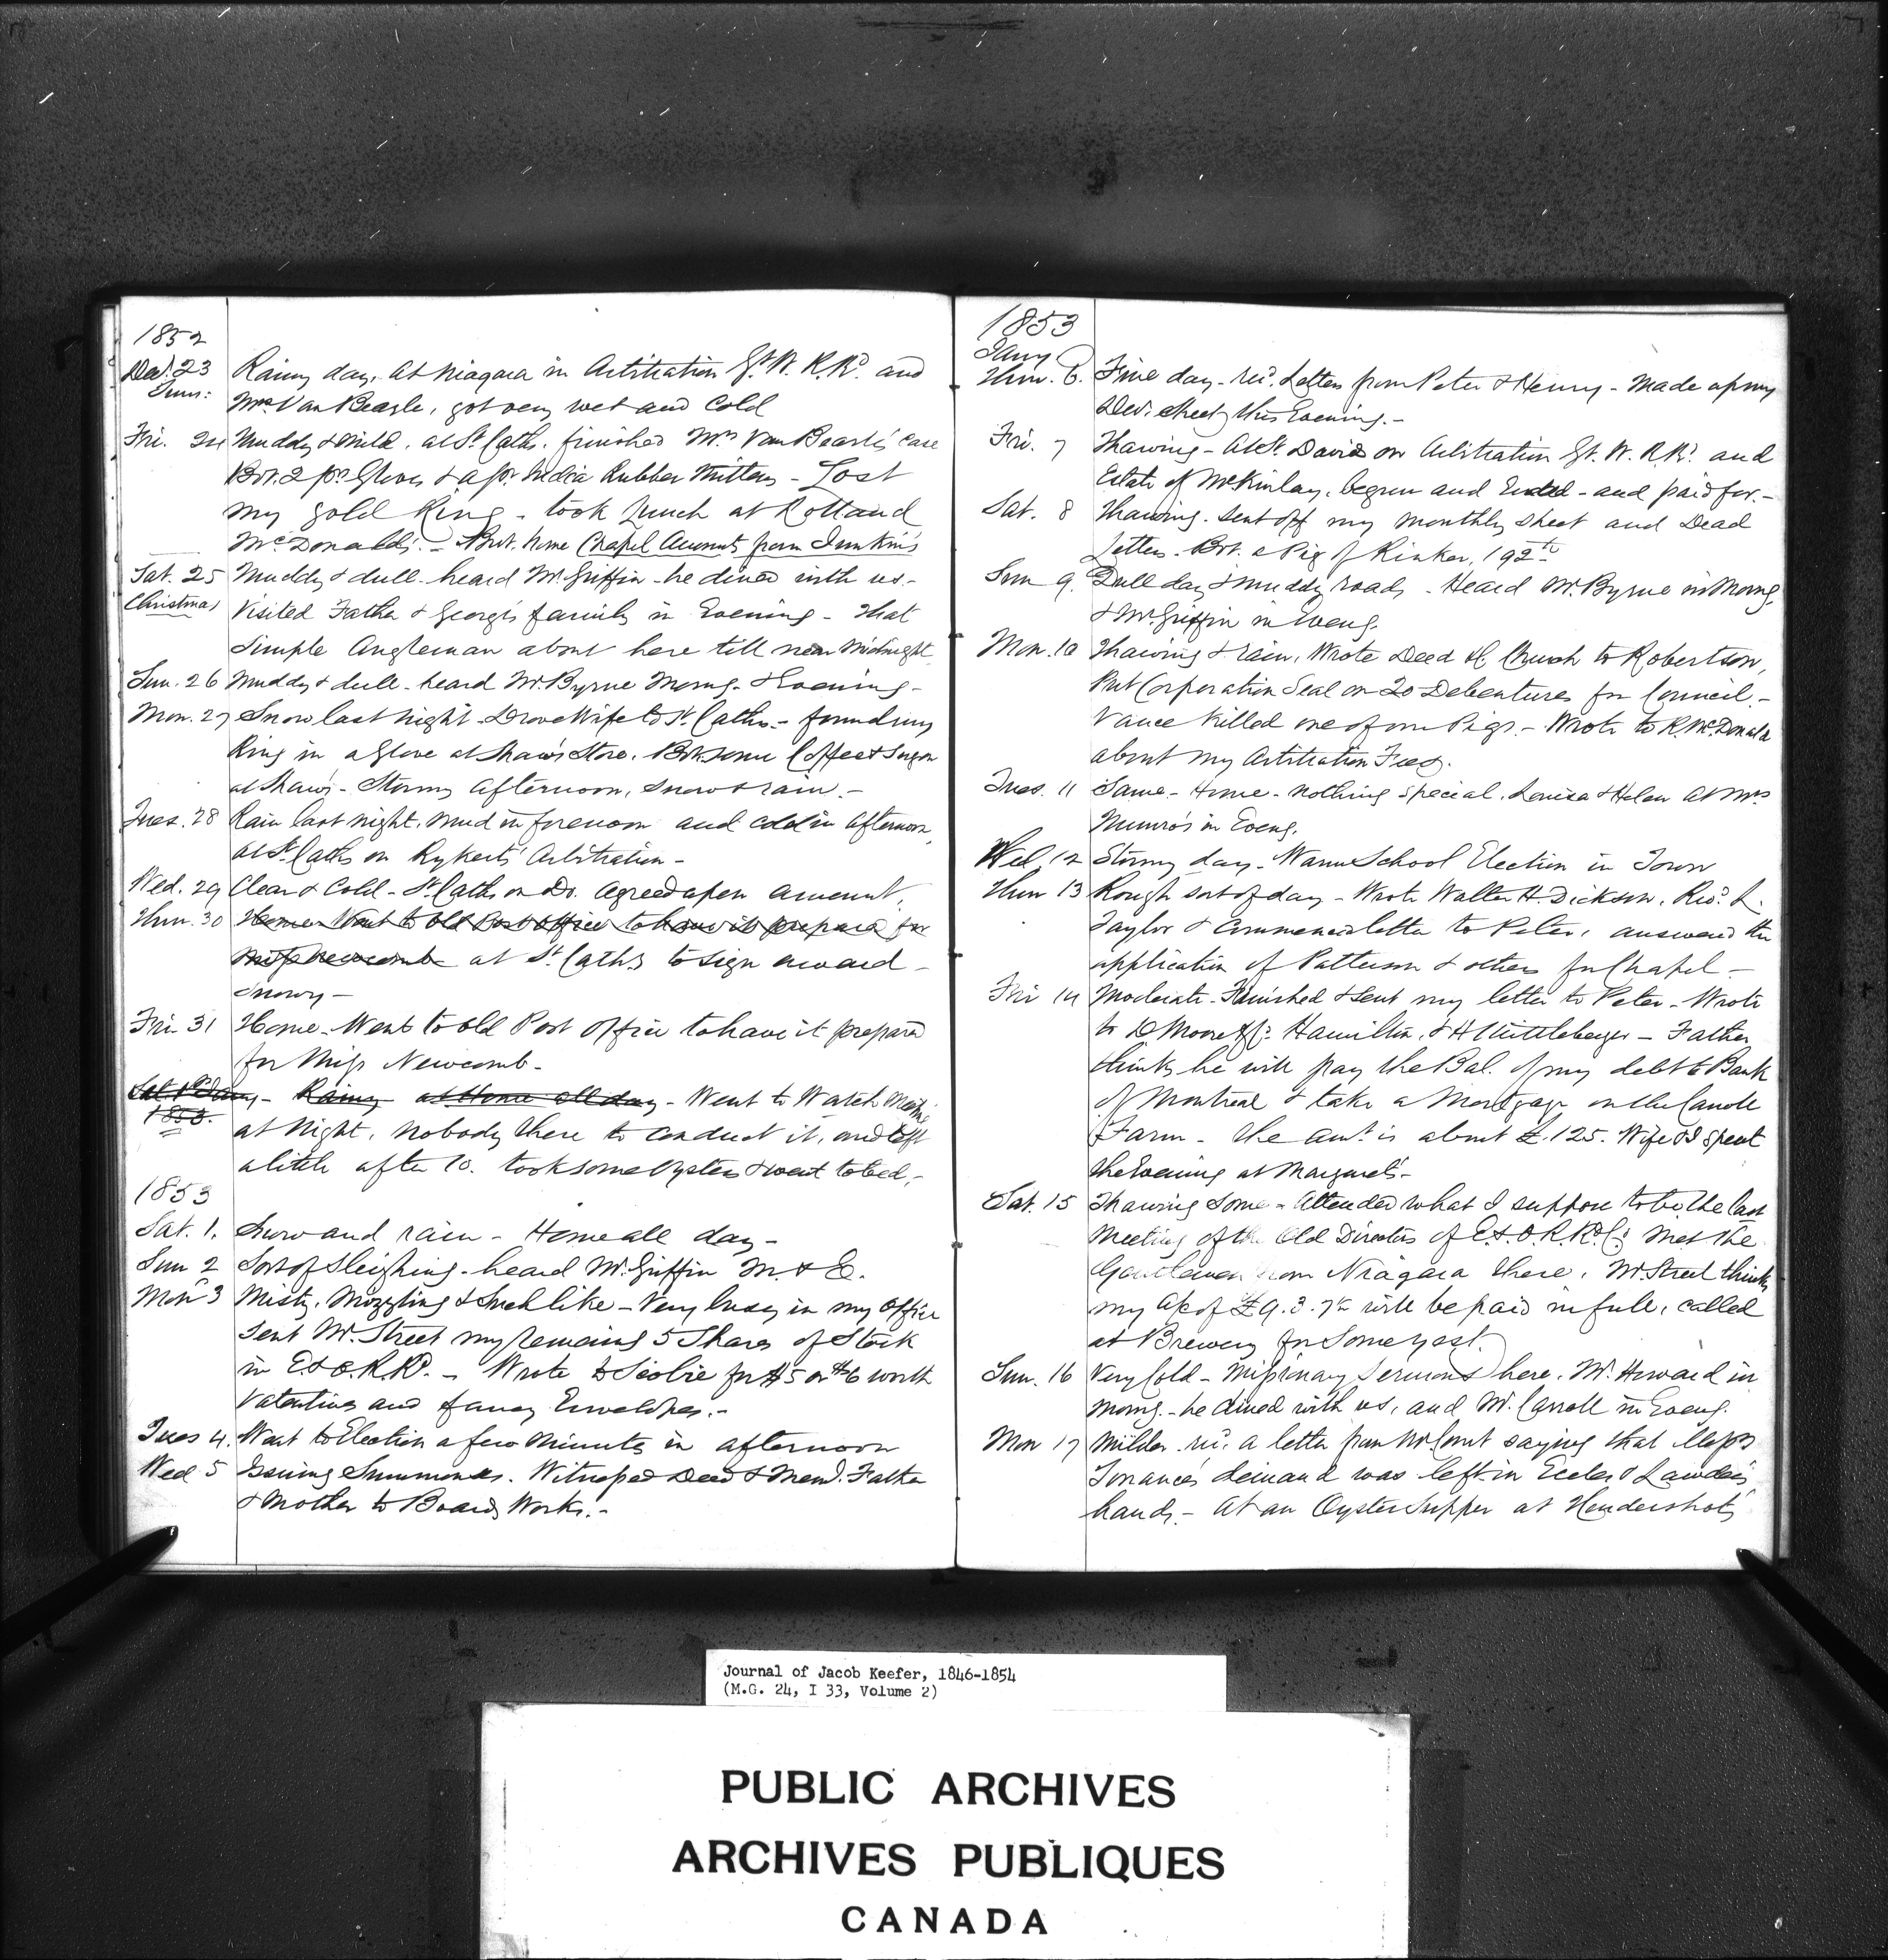 1852
Dec. 23 Rainy day. At Niagara in Arbitration Gt. W. R. Rd. and
Thurs: Mrs Van Bearle, got very wet and cold
Fri. 24 Muddy & mild. at St Caths. finished Mrs Van Bearle's case
Bot. 2 pr Gloves & a pr. India Rubber Mittens - Lost
my gold Ring - took Lunch at Rolland
McDonalds. - Brot. home Chapel Accounts from Junkins
Sat. 25 Muddy & dull - heard Mr. Griffin - he dined with us -
Christmas Visited Father & George's family in Evening - That
simple Angleman about here till near Midnight
Sun. 26 Muddy & dull - heard Mr. Byrne Morng. & Evening -
Mon. 27 Snow last night - Drove Wife to St Caths - found my
Ring in a Glove at Shaw's Store. Bot. some Coffee & Sugar
at Shaw's - Stormy afternoon, snow & rain. -
Tues. 28 Rain last night. mud in forenoon and cold in afternoon,
at St. Caths on Rykerts' Arbitration -
Wed. 29 Clear & Cold - St. Caths on Do. agreed upon amount.
Thur. 30 Home - Went to Old Post Office to have it prepared for
Miss Newcomb at St. Caths to sign award -
Snowy -
Fri 31 Home - Went to old Post Office to have it prepared
for Miss Newcomb -
Sat 1st Jany - Rainy at Home all day - Went to Watch Meeting
1853.
at Night. Nobody there to conduct it, and left
a little after 10. took some Oysters & went to bed. -
1853
Sat. 1. Snow and rain - Home all day -
Sun 2 Sort of Sleighing - heard Mr. Griffin M. & E.
Mon 3 Misty, Mizzling & such like - Very busy in my Office
sent Mr. Street my remaing 5 Shares of Stock
in E. & O. R. Rd. - Wrote to Scobie for $5 or $6 worth
Valentines and fancy Envelopes. -
Tues 4. Went to Election a few minutes in afternoon
Wed 5 Issuing Summonses. Witnessed Deed & Meml. Father
& Mother to Board Works. -
1853
Jany
Thur. 6. Fine day - recd. Letters from Peter & Henry - Made up my
Decr. sheet this Evening. -
Fri. 7 Thawing - At St. Davids on Arbitration Gt. W. R. Rd. and
Estate of McKinlay, begun and Ended - and paid for. -
Sat. 8 Thawing - sent off my monthly sheet and Dead
Letters - Bot. a Pig of Rinker, 192 lb
Sun 9. Dull day & muddy roads - Heard Mr. Byrne in Morng.
& Mr. Griffin in Eveng.
Mon. 10 Thawing & rain, Wrote Deed H. Church to Robertson,
Put Corporation Seal on 20 Debentures for Council. -
Vance killed one of our Pigs. - Wrote to R. McDonald
about my Arbitration Fees.
Tues. 11 Same - Home - nothing special. Louisa & Helen at Mrs
Munro's in Eveng.
Wed. 12 Stormy day - Warm School Election in Town
Thur 13 Rough sort of day - Wrote Walter H. Dickson, Revd. L.
Taylor & commenced letter to Peter, answered the
application of Patterson & others for Chapel -
Fri 14 Moderate - Finished & sent my letter to Peter - Wrote
to D. Moore & Co. Hamilton, & H Mittleberger - Father
thinks he will pay the Bal. of my debt to Bank
of Montreal & take a Mortgage on the
Farm - the amt. is about £.125. Wife & I spent
the Evening at Margaret's -
Sat. 15 Thawing some - Attended what I suppose to be the last
Meeting of the Old Directors of E. & O. R. Rd. Co. met the
Gentlemen from Niagara there. Mr. Street thinks
my a/c of £9.3.7 1/2 will be paid in full, called
at Brewery for some yest.
Sun. 16 Very Cold - Missionary Sermons here. Mr. Howard in
Morng. - he dined with us, and Mr. Carroll in Eveng.
Mon 17 Milder - recd. a letter from saying that Messrs
Torrance's demand was left in Eccles & Lawder's
hands. - At an Oyster Supper at Hendershot's
Journal of Jacob Keefer, 1846-1854
(M.G. 24, I 33, Volume 2)
PUBLIC ARCHIVES
ARCHIVES PUBLIQUES
CANADA